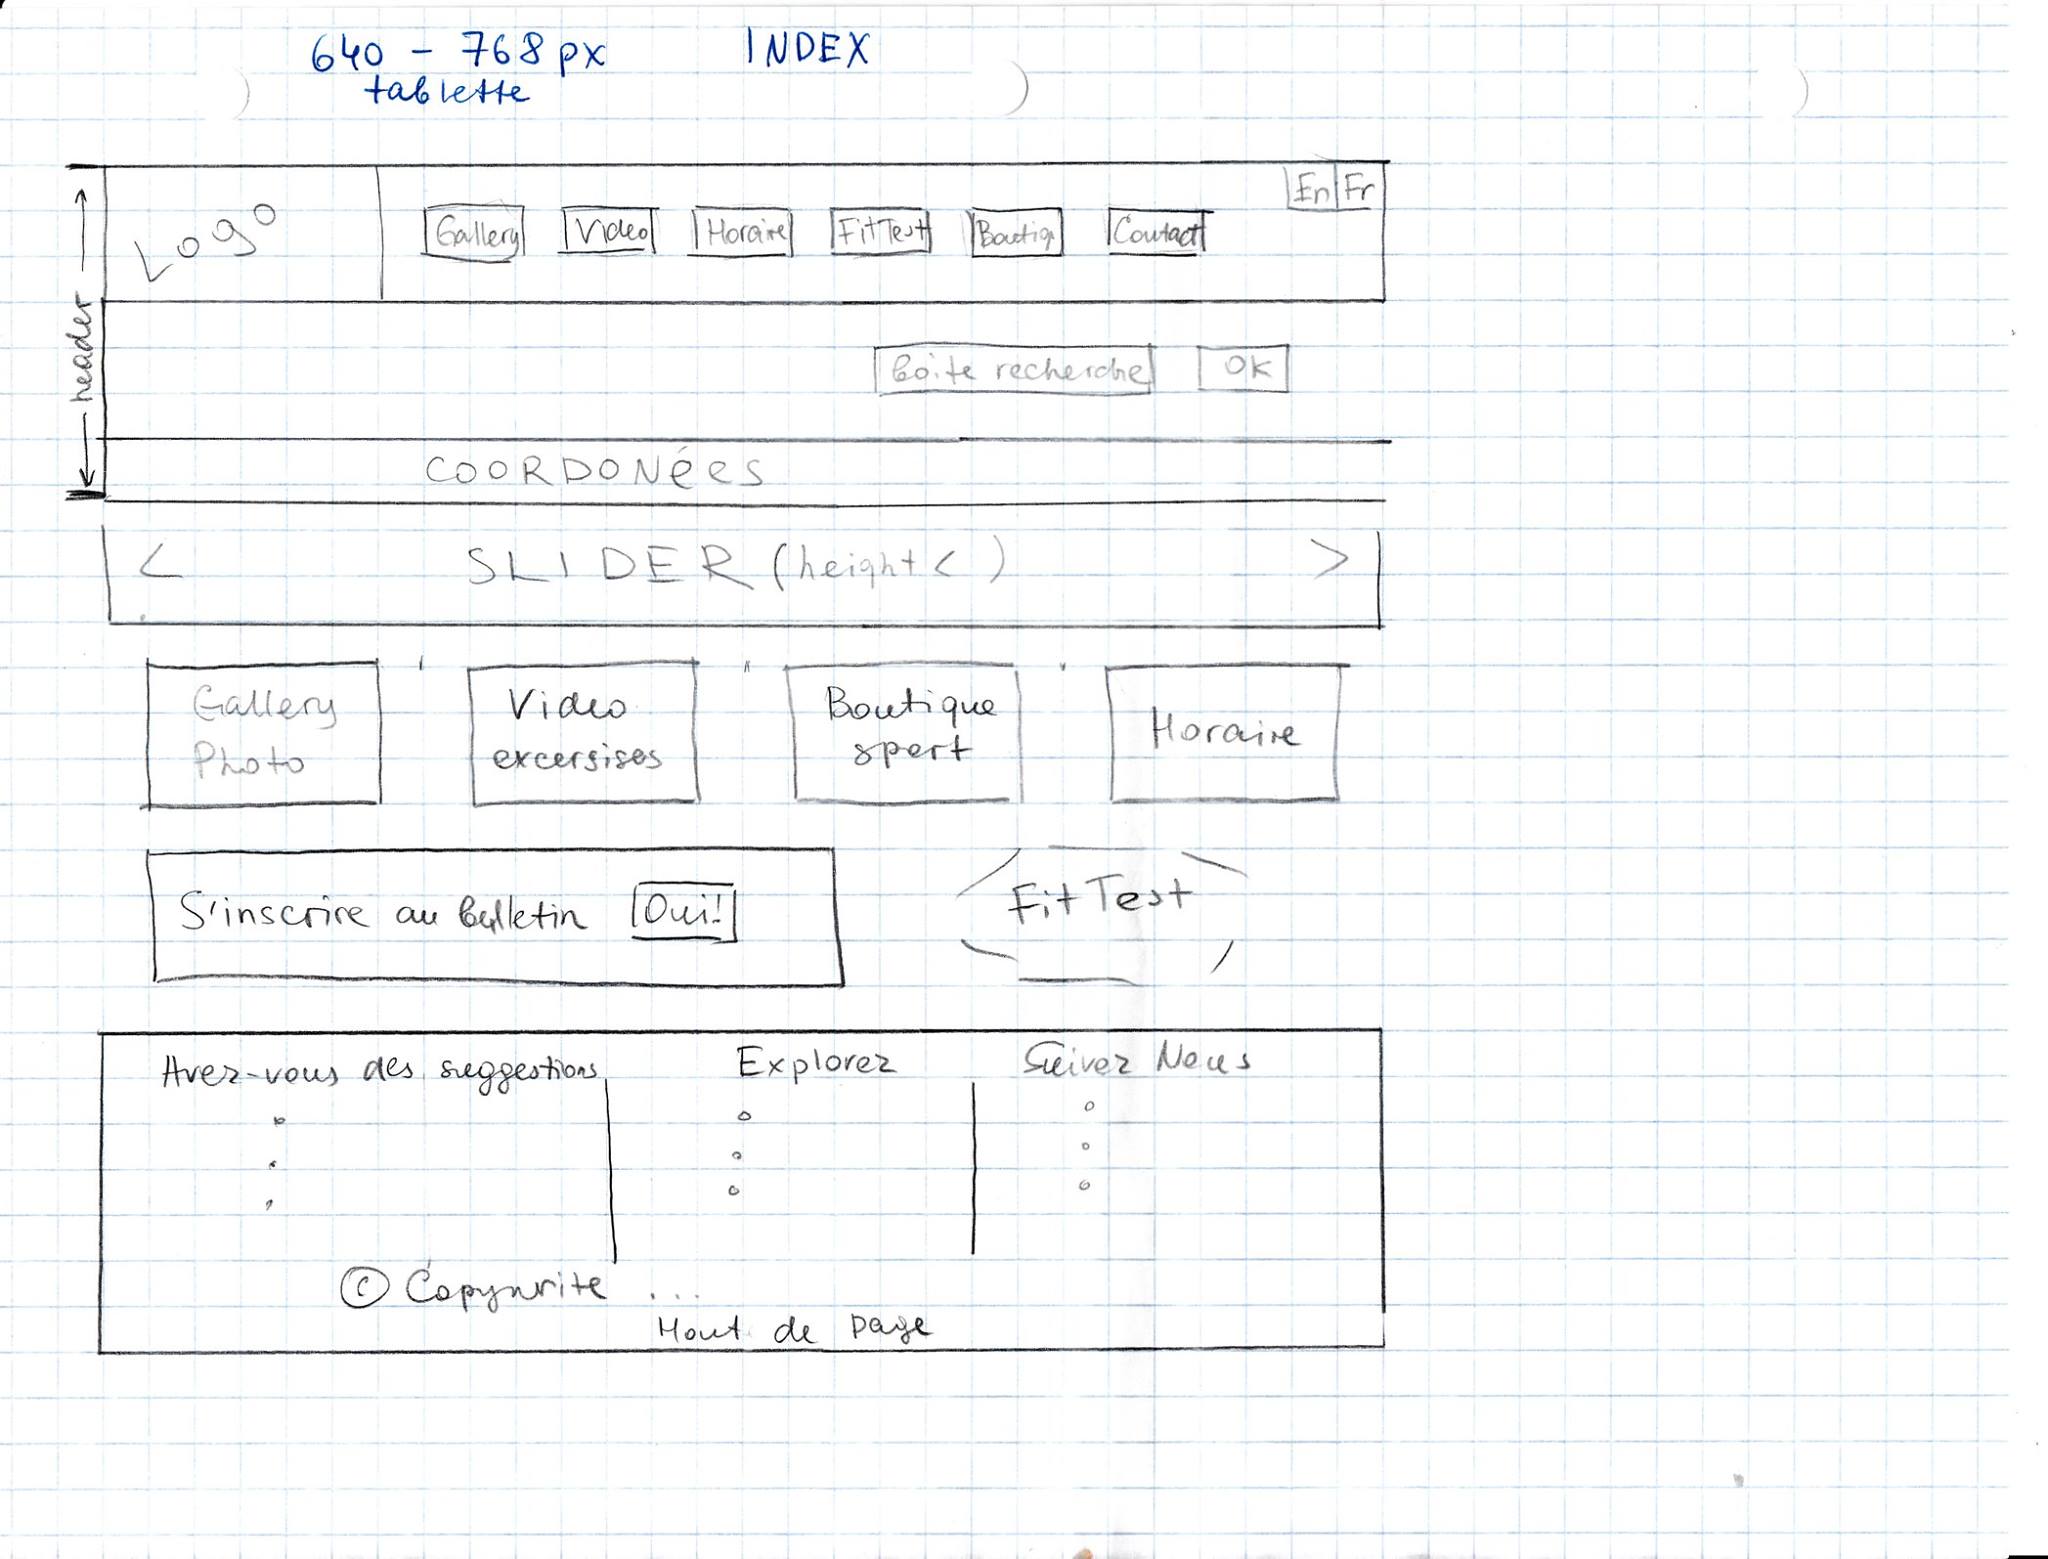 640 - 768 px INDEX
tablette
header
Logo
Gallery Video Horaire FitTest Boutiq Contact
En Fr
boite recherche OK
COORDONées
< SLIDER (height < ) >
Gallery
Photo
Video
excersises
Boutique
sport
Horaire
S'inscrire au bulletin Oui!
Fit Test
Avez-vous des suggestions
Explorez
Suivez Nous
© Copywrite ...
Hout de page